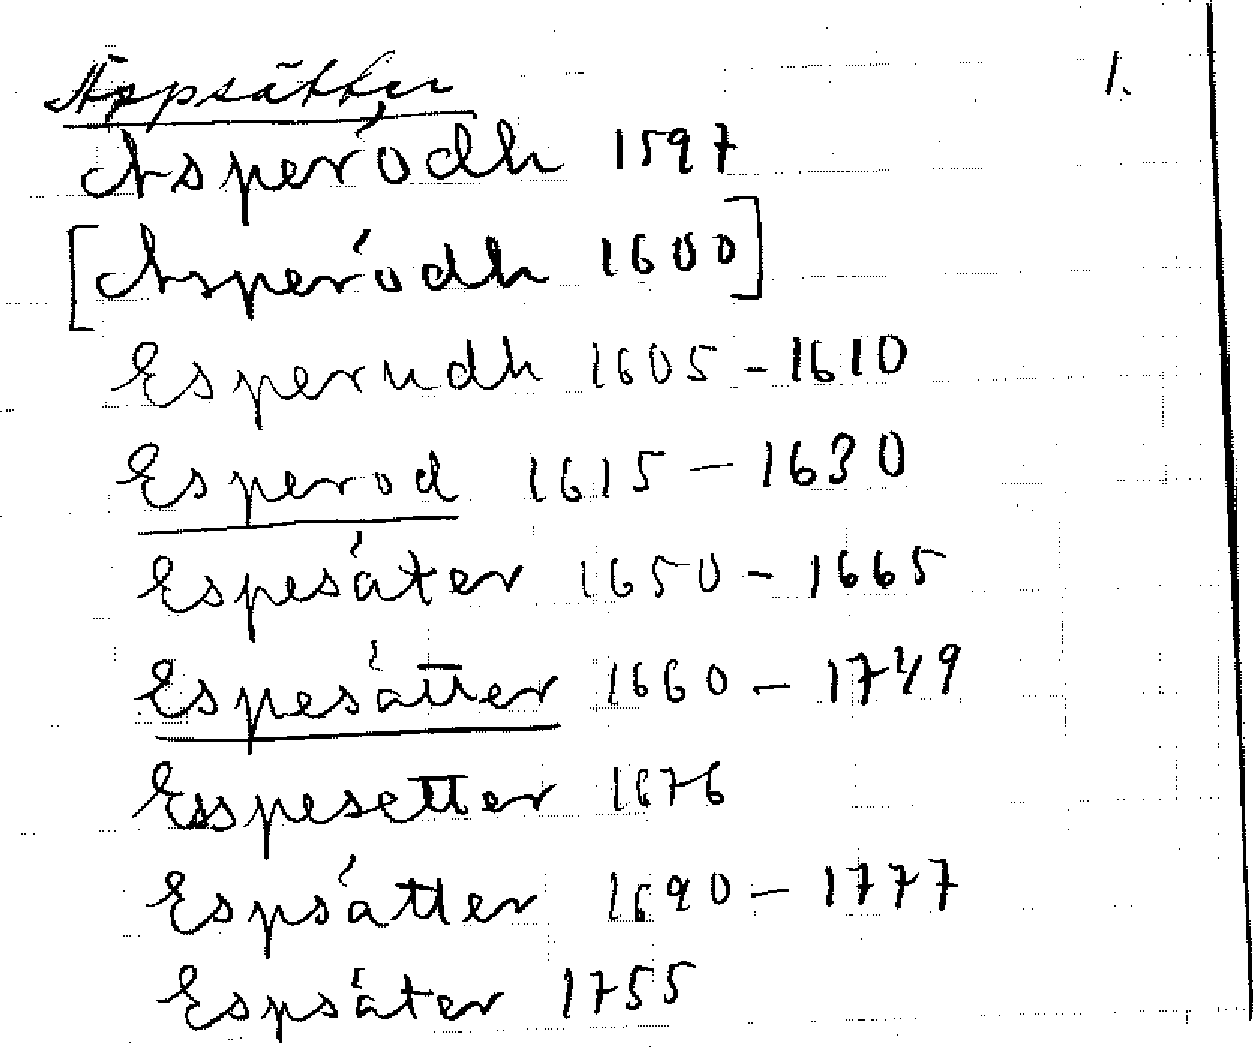 Äppsätter 1.
Asperödh 1597
[Asperödh 1600]
Esperudh 1605 - 1610
Esperod 1615 - 1630
Espesäter 1650 - 1665
Espesätter 1660 - 1749
Esspesetter 1676
Espsätter 1690 - 1777
Espsäter 1755